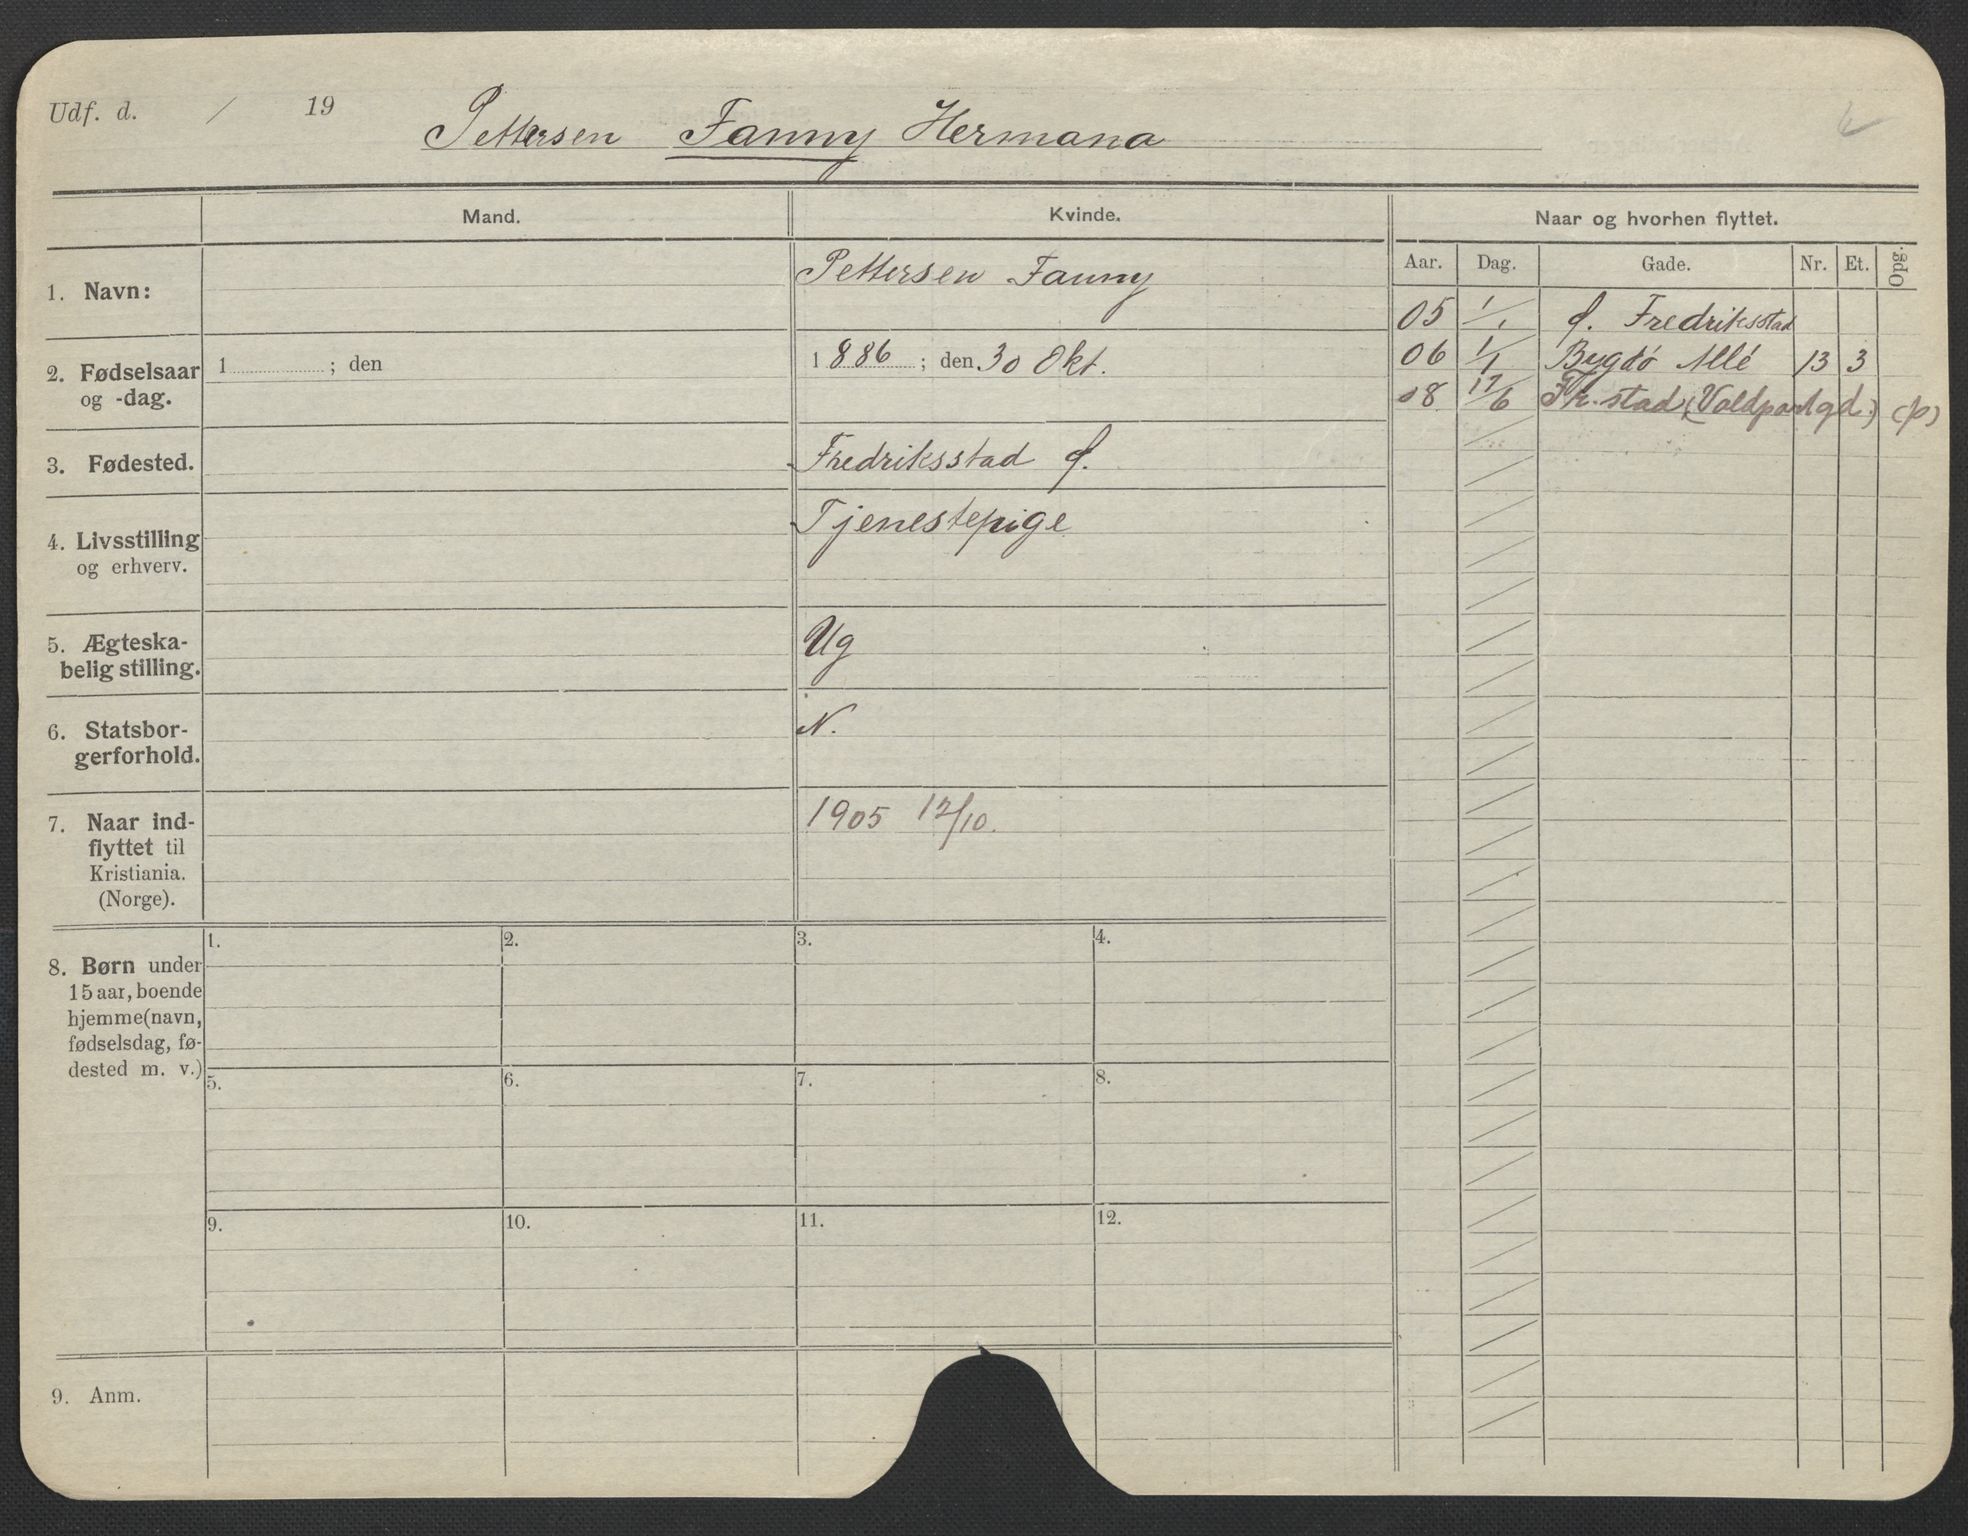 Udf. d. / 19
Pettersen Fanny Hermana
Mand.
Kvinde.
Naar og hvorhen flyttet.
Aar. Dag. Gade. Nr. Et. Opg.
1. Navn:
Pettersen Fanny
05 1/1 f. Fredriksstad
06 1/1 Bygdø Allé 13 3
08 17/6 Fr.stad (Voldportgd.) (p)
2. Fødselsaar
og -dag.
1 ; den
1886 ; den 30 Okt.
3. Fødested.
Fredriksstad f.
4. Livsstilling
og erhverv.
Tjenestepige
5. Ægteska-
belig stilling.
Ug
6. Statsbor-
gerforhold.
N.
7. Naar ind-
flyttet til
Kristiania.
(Norge).
1905 12/10.
8. Børn under
15 aar, boende
hjemme (navn,
fødselsdag, fø-
dested m. v.)
1. 2. 3. 4.
5. 6. 7. 8.
9. 10. 11. 12.
9. Anm.